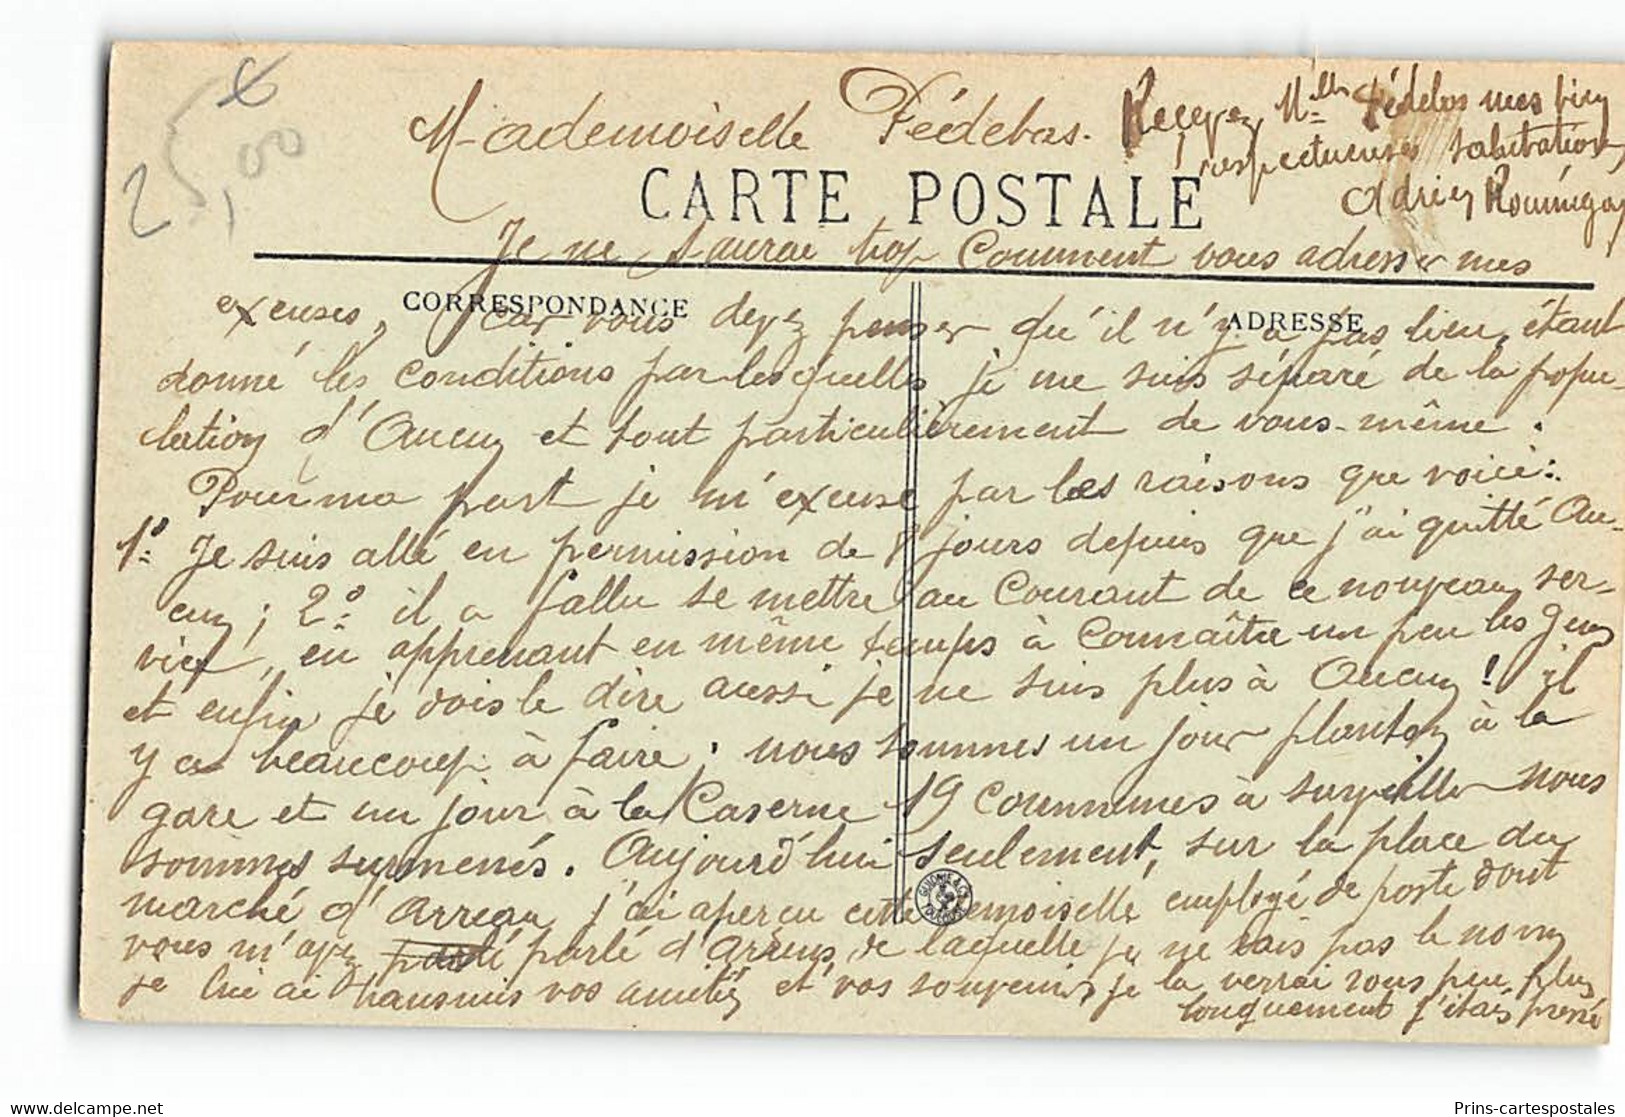 25,00 €
Mademoiselle Fédebas.
CARTE POSTALE
Je ne saurai trop comment vous adresser mes
CORRESPONDANCE
ADRESSE
excuses, car vous devez penser qu'il n'y a pas lieu, étant
donné les conditions par lesquelles je me suis séparé de la popu-
lation d'Aucun et tout particulièrement de vous-même.
Pour ma part je m'excuse par les raisons que voici:
1°- Je suis allé en permission de 8 jours depuis que j'ai quitté Au-
cun; 2°- il a fallu se mettre au courant de ce nouveau ser-
vice, en apprenant en même temps à connaître un peu les gens
et enfin je dois le dire aussi je ne suis plus à Aucun! il
y a beaucoup à faire; nous sommes un jour planton à la
gare et un jour à la Caserne 19 communes à surveiller nous
sommes surmenés. Aujourd'hui seulement, sur la place du
marché d'Arreau j'ai aperçu cette demoiselle employé de poste dont
vous m'avez parlé d'Arrens, de laquelle je ne sais pas le nom
je lui ai transmis vos amitiés et vos souvenirs, je la verrai sous peu plus
longuement j'étais pressé
Recevez Mlle Fédebas mes bien
respectueuses salutations
Adrien
GANONIE & Cie TOULOUSE
Prins-cartespostales